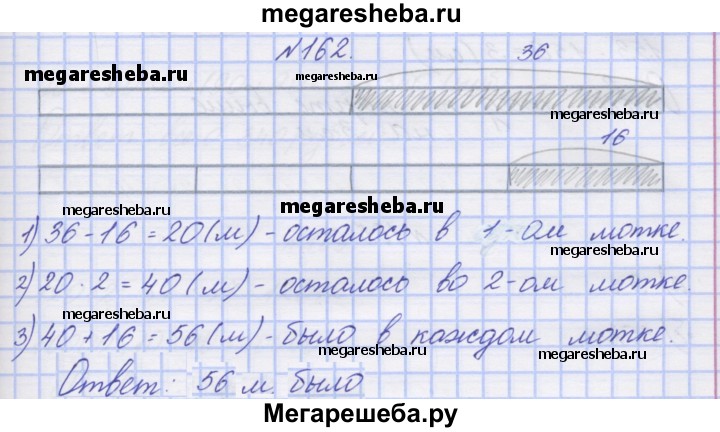 megaresheba.ru
№162.
36
megaresheba.ru
megaresheba.ru
16
megaresheba.ru
megaresheba.ru
megaresheba.ru
1) 36 - 16 = 20 (м) - осталось в 1-ом мотке.
2) 20 · 2 = 40 (м) - осталось во 2-ом мотке.
3) 40 + 16 = 56 (м) - было в каждом мотке.
megaresheba.ru
megaresheba.ru
Ответ: 56 м. было
Мегарешеба.ру